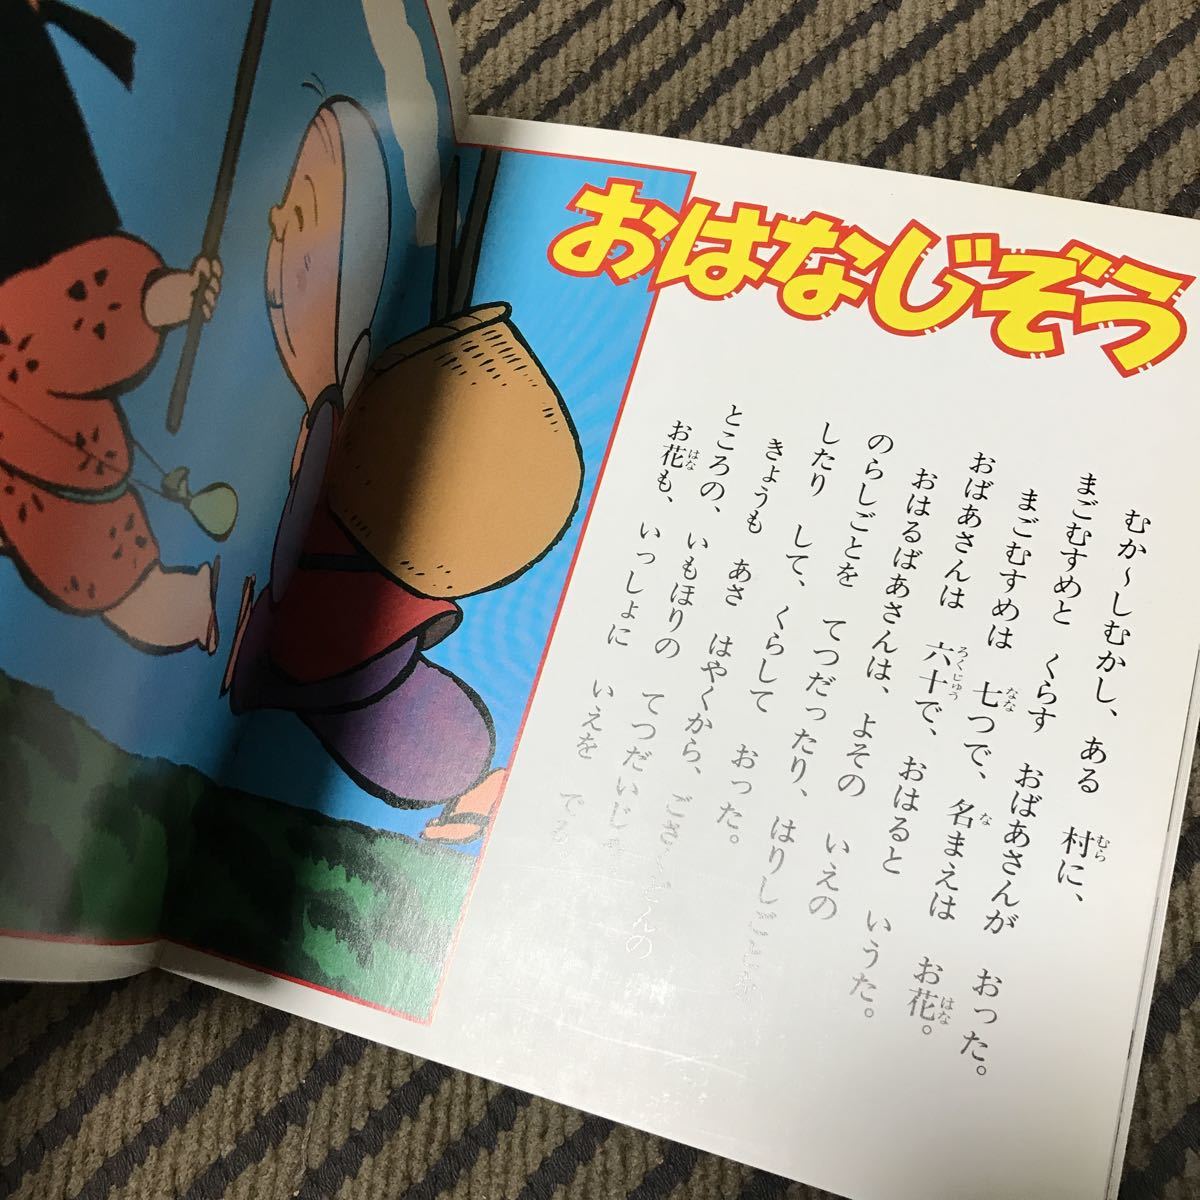 おはなじぞう
むか～しむかし、ある 村に、
まごむすめと くらす おばあさんが おった。
まごむすめは 七つで、名まえは お花。
おばあさんは 六十で、おはると いうた。
おはるばあさんは、よその いえの
のらしごとを てつだったり、はりしごとを
したり して、くらして おった。
きょうも あさ はやくから、ごさくどんの
ところの、いもほりの てつだいじゃ
お花も、いっしょに いえを でる